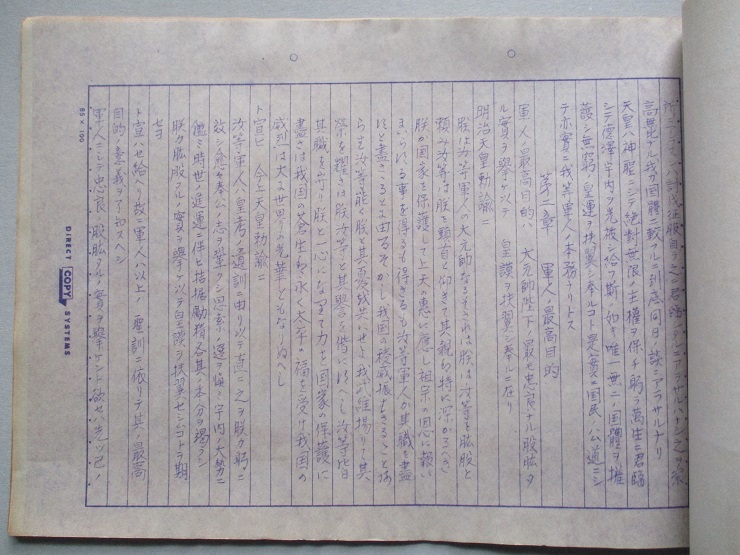 高無比ナル我カ國體ニ戰フルニ到底同日ノ談ニアラサルナリ
天皇ハ神聖ニシテ絶對無限ノ主權ヲ保チ躬ラ萬生ニ君臨
シテ德澤宇内ヲ光被シ給フ斯ノ如キ唯一無二ノ國體ヲ擁
護シ無窮ノ皇運ヲ扶翼シ奉ルコト是實ニ國民ノ公道ニシ
テ亦實ニ我等軍人ノ本務ナリトス
第二章 軍人ノ最高目的
軍人ノ最高目的ハ 大元帥陛下ノ最モ忠良ナル股肱タ
ル實ヲ擧ケ以テ 皇謨ヲ扶翼シ奉ルニ在リ
明治天皇勅諭ニ
朕は汝等軍人の大元帥なるそされは朕は汝等を股肱と
頼み汝等は朕を頭首と仰きて其親は特に深かるへき
朕か國家を保護して上天の惠に應し祖宗の恩に報い
まいらする事を得るも得さるも汝等軍人か其職を盡
すと盡さゝるとに由るそかし我國の稜威振はさることあ
らは汝等能く朕と其憂を共にせよ我武維揚りて其
榮を耀さは朕汝等と其譽を偕にすへし汝等皆
其職を守り朕と一心になりて力を國家の保護に
盡さは我國の蒼生は永く太平の福を受け我國の
威烈は大に世界の光華ともなりぬへし
ト宣ヒ 今上天皇勅諭ニ
汝等軍人ハ皇考ノ遺訓ニ由リ以テ直ニ之ヲ朕カ躬ニ
效シ愈々奉公ノ志ヲ鞏クシ思索ノ選ヲ愼ミ宇内ノ大勢ニ
鑑ミ時世ノ進運ニ伴ヒ拮据勵精各其ノ本分ヲ竭クシ
朕カ股肱タルノ實ヲ擧ケ以テ皇謨ヲ扶翼センコトヲ期
セヨ
ト宣ハセ給ヘリ故ニ軍人ハ以上ノ 聖訓ニ依リテ其ノ最高
目的ノ意義ヲ了知スヘシ
軍人ニシテ忠良ノ股肱タルノ實ヲ擧ケント欲セハ先ツ己ノ
DIRECT COPY SYSTEMS